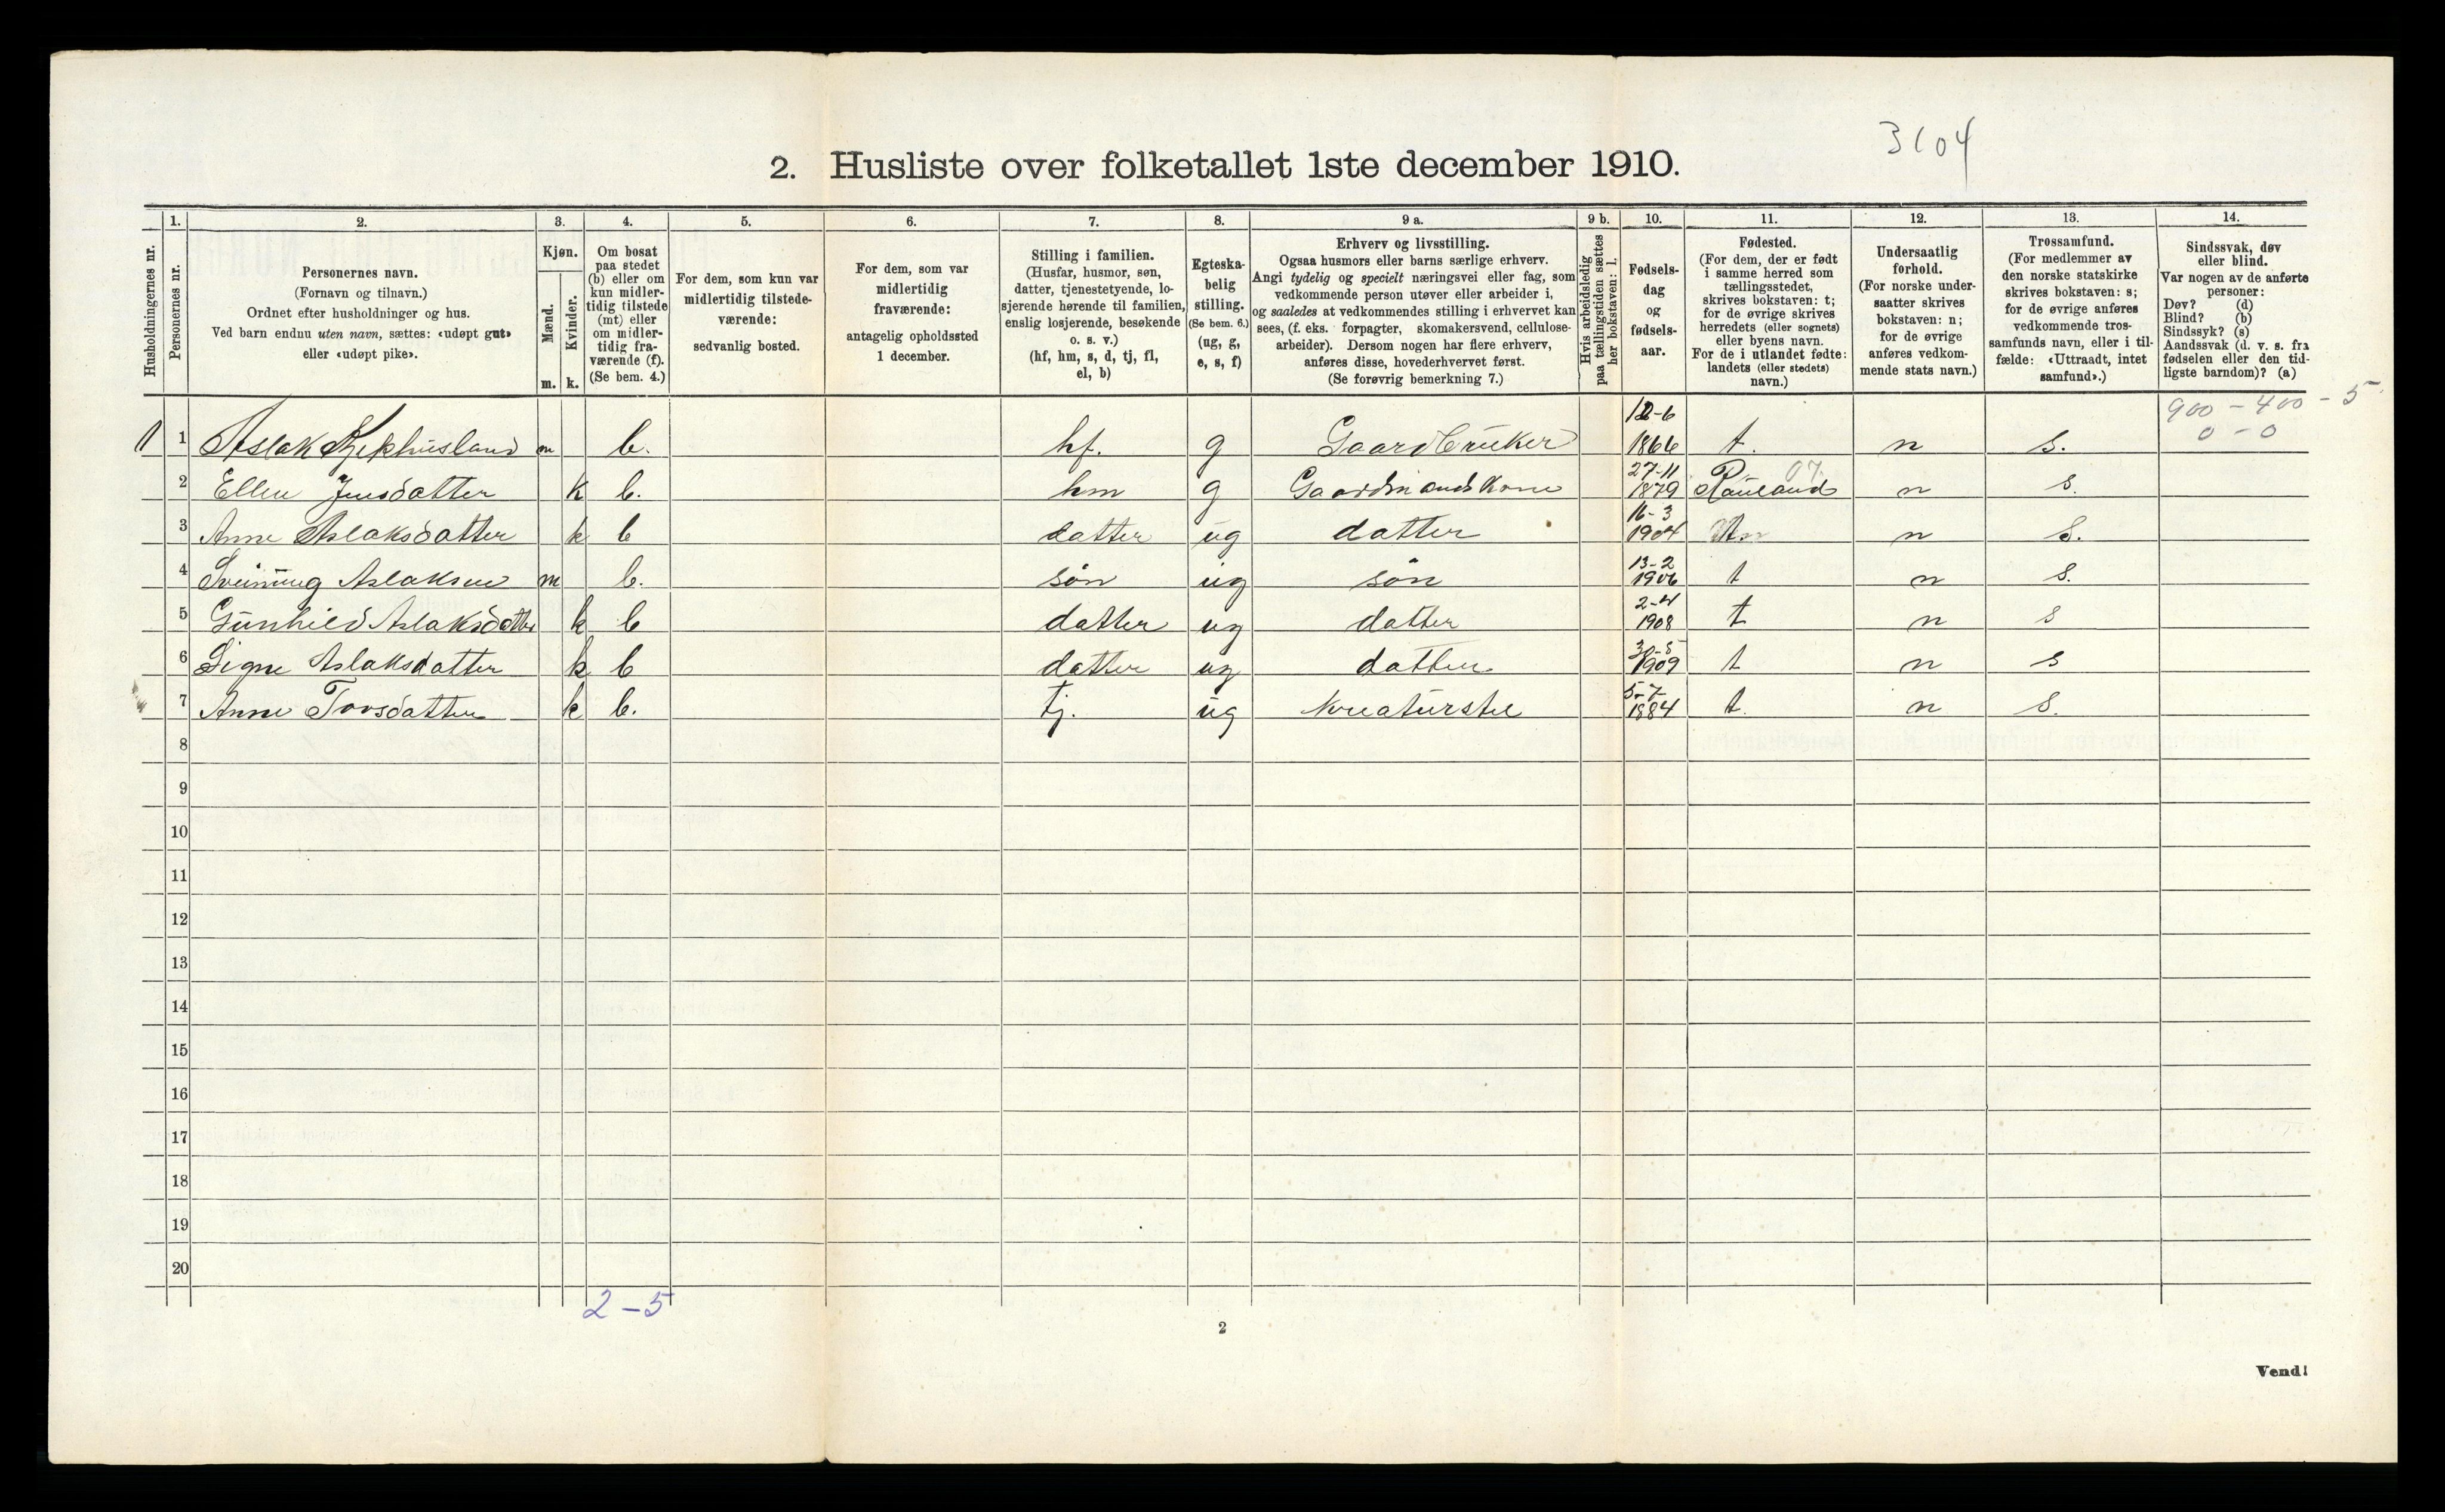 3104
2. Husliste over folketallet 1ste december 1910.
Husholdningernes nr.
1. Personernes nr.
2. Personernes navn. (Fornavn og tilnavn.) Ordnet efter husholdninger og hus. Ved barn endnu uten navn, sættes: «udøpt gut» eller «udøpt pike».
3. Kjøn. Mænd. m. Kvinder. k.
4. Om bosat paa stedet (b) eller om kun midler-tidig tilstede (mt) eller om midler-tidig fra-værende (f). (Se bem. 4.)
5. For dem, som kun var midlertidig tilstede-værende: sedvanlig bosted.
6. For dem, som var midlertidig fraværende: antagelig opholdssted 1 december.
7. Stilling i familien. (Husfar, husmor, søn, datter, tjenestetyende, lo-sjerende hørende til familien, enslig losjerende, besøkende o. s. v.) (hf, hm, s, d, tj, fl, el, b)
8. Egteska-belig stilling. (Se bem. 6.) (ug, g, e, s, f)
9 a. Erhverv og livsstilling. Ogsaa husmors eller barns særlige erhverv. Angi tydelig og specielt næringsvei eller fag, som vedkommende person utøver eller arbeider i, og saaledes at vedkommendes stilling i erhvervet kan sees, (f. eks. forpagter, skomakersvend, cellulose-arbeider). Dersom nogen har flere erhverv, anføres disse, hovederhvervet først. (Se forøvrig bemerkning 7.)
9 b. Hvis arbeidsledig paa tællingstiden sættes her bokstaven: l.
10. Fødsels-dag og fødsels-aar.
11. Fødested. (For dem, der er født i samme herred som tællingsstedet, skrives bokstaven: t; for de øvrige skrives herredets (eller sognets) eller byens navn. For de i utlandet fødte: landets (eller stedets) navn.)
12. Undersaatlig forhold. (For norske under-saatter skrives bokstaven: n; for de øvrige anføres vedkom-mende stats navn.)
13. Trossamfund. (For medlemmer av den norske statskirke skrives bokstaven: s; for de øvrige anføres vedkommende tros-samfunds navn, eller i til-fælde: «Uttraadt, intet samfund».)
14. Sindssvak, døv eller blind. Var nogen av de anførte personer: Døv? (d) Blind? (b) Sindssyk? (s) Aandssvak (d. v. s. fra fødselen eller den tid-ligste barndom)? (a)
900 - 400 - 5
0 - 0
1 Aslak Kjekhusland m b. hf. g Gaardbruker 12-6 1866 t. n s.
2 Ellen Jensdatter k b. hm g Gaardmandskone 27-11 1879 Rauland 07 n s.
3 Anne Aslaksdatter k b datter ug datter 16-3 1904 n s.
4 Sveinung Aslaksen m b. søn ug søn 13-2 1906 t n s.
5 Gunhild Aslaksdatter k b datter ug datter 2-4 1908 t n s
6 Signe Aslaksdatter k b datter ug datter 30-5 1909 t n s
7 Anne Torsdatter k b. tj. ug kreaturstel 5-7- 1884 t. n s.
8
9
10
11
12
13
14
15
16
17
18
19
20
2 - 5
2
Vend!